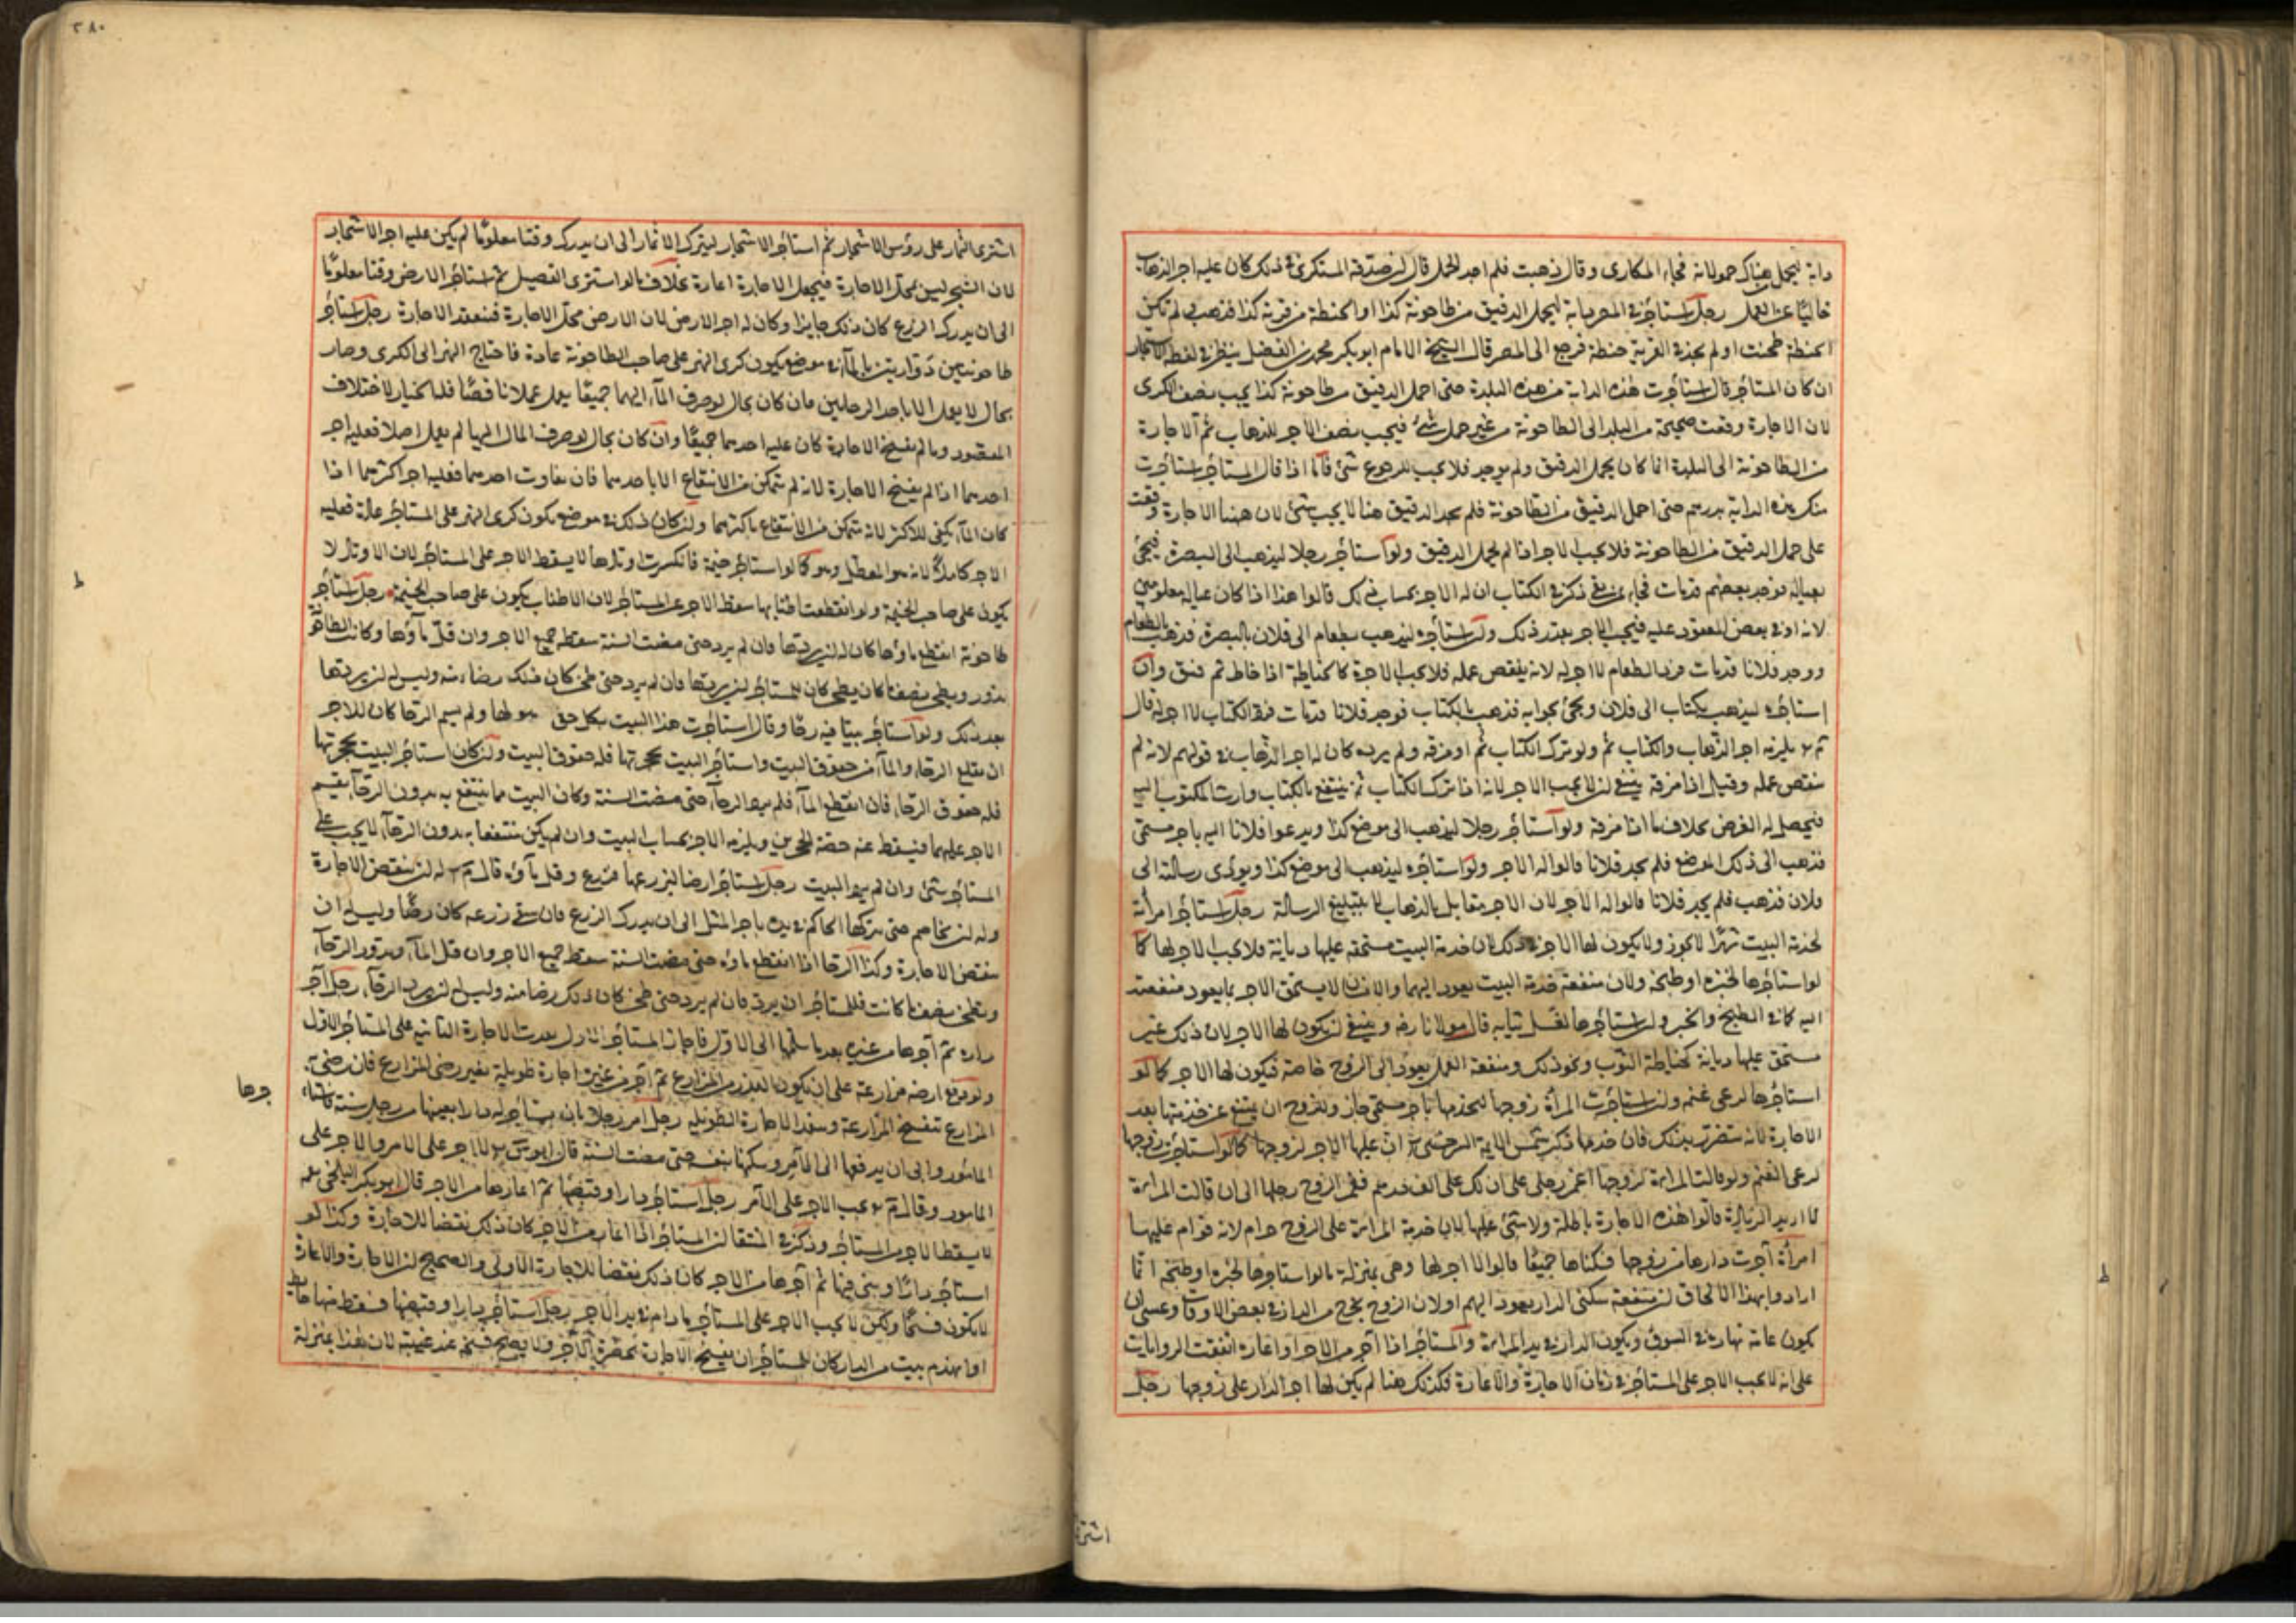 دابة ليحمل هناك حمولاته فجاء المكارى وقال ذهبت فلم اجد الحمل قال ان صدقه المستكرى فى ذلك كان عليه اجر الذهاب
خاليًا عن الحمل رجل استأجر فى المصر دابة ليحمل الدقيق من طاحونة كذا او الحنطة من قرية كذا فذهب فلم تكن
الحنطة طحنت او لم يجد فى القرية حنطة فرجع الى المصر قال الشيخ الامام ابو بكر محمد بن الفضل ينظر فى لفظة الاستئجار
ان كان المستأجر قال استأجرت هذه الدابة من هذه البلدة حتى احمل الدقيق من طاحونة كذا يجب نصف الكرى
لان الاجارة وقعت صحيحة من البلد الى الطاحونة من غير حمل شئ فيجب نصف الاجر للذهاب ثم الاجارة
من الطاحونة الى البلدة انما كان بحمل الدقيق ولم يوجد فلا يجب للرجوع شئ فاما اذا قال المستأجر استأجرت
منك هذه الدابة بدرهم حتى احمل الدقيق من الطاحونة فلم يجد الدقيق هنا لا يجب شئ لان ههنا الاجارة وقعت
على حمل الدقيق من الطاحونة فلا يجب الاجر اذا لم يحمل الدقيق ولو استأجر رجلا ليذهب الى البصرة فيجئ
بعياله فوجد بعضهم قد مات فجاء بمن بقى ذكر فى الكتاب ان له الاجر بحساب ذلك قالوا هذا اذا كان عياله معلومين
لانه اوفى بعض المعقود عليه فيجب الاجر بقدر ذلك ولو استأجره ليذهب بطعام الى فلان بالبصرة فذهب بالطعام
ووجد فلانا قد مات فرد الطعام لا اجر له لانه نقض عمله فلا يجب الاجرة كالخياطة اذا خاط ثم فتق وان
استأجره ليذهب بكتاب الى فلان ويجئ بجوابه فذهب بالكتاب فوجد فلانا قد مات فرد الكتاب لا اجر له قال
يلزمه اجر الذهاب والكتاب ثم ولو ترك الكتاب ثم او مزقه ولم يرده كان له اجر الذهاب فى قولهم لانه لم
ينقض عمله وقيل اذا مزقه ينبغى ان لا يجب الاجر لانه اذا ترك الكتاب ثم ينتفع بالكتاب وارث المكتوب اليه
فيحصل له الغرض بخلاف ما اذا مزقه ولو استأجر رجلا ليذهب الى موضع كذا ويدعو فلانا اليه باجر مسمى
فذهب الى ذلك الموضع فلم يجد فلانا قالوا له الاجر ولو استأجره ليذهب الى موضع كذا ويؤدى رسالته الى
فلان فذهب فلم يجد فلانا قالوا له الاجر لان الاجر مقابل بالذهاب لا بتبليغ الرسالة رجل استأجر امرأته
لخدمة البيت شهرًا لا يجوز ولا يكون لها الاجر وذلك لان خدمة البيت مستحقة عليها ديانة فلا يجب الاجر لها كما
لو استأجرها لخبزه او طبخه ولان منفعة خدمة البيت يعود اليهما والانسان لا يستحق الاجر بما يعود منفعته
اليه كما فى الطبخ والخبز ولو استأجرها لغسل ثيابه قال مولانا رضه وينبغى ان يكون لها الاجر لان ذلك غير
مستحق عليها ديانة كخياطة الثوب ونحو ذلك ومنفعة العمل يعود الى الزوج خاصة فيكون لها الاجر كما لو
استأجرها لرعى غنمه ولو استأجرت المرأة زوجها ليخدمها باجر مسمى جاز وللزوج ان يمتنع عن خدمتها بعد
الاجارة لانه يتضرر بذلك فان خدمها ذكر شمس الايمة السرخسى ان عليها الاجر لزوجها كما لو استأجرت زوجها
لرعى الغنم ولو قالت المرأة لزوجها اغمز رجلى على ان لك على الف درهم فغمز الزوج رجلها الى ان قالت المرأة
لا اريد الزيادة قالوا هذه الاجارة باطلة ولا شئ عليها لان خدمة المرأة على الزوج حرام لانه قوام عليها
امرأة آجرت دارها من زوجها فسكناها جميعًا قالوا لا اجر لها وهى بمنزلة ما لو استأجرها لخبزه او طبخه انما
ارادوا بهذا الالحاق ان منفعة سكنى الدار يعود اليهم اولان الزوج يخرج من الدار فى بعض الاوقات وعسى ان
يكون عامة نهاره فى السوق ويكون الدار فى يد المرأة والمستأجر اذا آجر من الآجر او اعاره اتفقت الروايات
على انه لا يجب الاجر على المستأجر فى زمان الاجارة والاعارة فكذلك هنا لم يكن لها اجر الدار على زوجها رجل
اشترى
٢٨٠
اشترى الثمار على رؤس الاشجار ثم استأجر الاشجار ليترك الاثمار الى ان يدرك وقتا معلومًا لم يكن عليه اجر الاشجار
لان الشجر ليس محل الاجارة فيجعل الاجارة اعارة بخلاف ما لو استرى القصيل ثم استأجر الارض وقتا معلومًا
الى ان يدرك الزرع كان ذلك جايزا وكان له اجر الارض لان الارض محل الاجارة فتنعقد الاجارة رجل استأجر
طاحونتين دوارتين بالماء فى موضع يكون كرى النهر على صاحب الطاحونة عادة فاحتاج النهر الى الكرى وصار
بحال لا يعمل الا باحد الرحايين فان كان بحال لو صرف الماء اليهما جميعًا يعمل عملا ناقصًا فله الخيار لاختلاف
المقصود وما لم يفسخ الاجارة كان عليه اجرهما جميعًا وان كان بحال لو صرف الماء اليهما لم يعمل اصلا فعليه اجر
احدهما اذا لم يفسخ الاجارة لانه لم يتمكن من الانتفاع الا باحدهما فان تفاوت احدهما فعليه اجر اكثرهما اذا
كان الماء يكفى للاكثر لانه يتمكن من الانتفاع باكثرهما ولو كان ذلك فى موضع يكون كرى النهر على المستأجر عادة فعليه
الاجر كاملا لانه هو المعطل وهو كما لو استأجر خيمة فانكسرت اوتادها لا يسقط الاجر على المستأجر لان الاوتاد لا
يكون على صاحب الخيمة ولو انقطعت اطنابها سقط الاجر عن المستأجر لان الاطناب يكون على صاحب الخيمة رجل استأجر
طاحونة انقطع ماؤها كان له ان يردها وان لم يرد حتى مضت السنة سقط جميع الاجر وان قل ماؤها وكانت الطاحونة
تدور ويطحن نصف ما كان يطحن كان للمستأجر ان يردها فان لم يرد حتى طحن كان ذلك رضاء منه وليس له ان يردها
بعد ذلك ولو استأجر بيتا فيه رحا وقال استأجرت هذا البيت بكل حق هو لها ولم يسم الرحا كان للآجر
ان يقلع الرحا والماء من حقوق البيت واستأجر البيت بحجرتها فله حقوق البيت ولو كان استأجر البيت بحجرتها
فله حقوق الرحا فان انقطع الماء فلم يرد الرحا حتى مضت السنة وكان البيت مما ينتفع به بدون الرحا يقسم
الاجر عليهما فيسقط عنه حصة الحجرين ويلزمه الاجر بحساب البيت وان لم يكن منتفعا به بدون الرحا لا يجب على
المستأجر شئ وان لم يرد البيت رجل استأجر ارضا ليزرعها فزرع وقل ماؤه قال له ان ينقض الاجارة
وله ان يخاصم حتى يتركها الحاكم فى يده باجر المثل الى ان يدرك الزرع فان سقى زرعه كان رضًا وليس له ان
ينقض الاجارة وكذا الرحا اذا انقطع ماؤه حتى مضت السنة سقط جميع الاجر وان قل الماء ويدور الرحا
ويطحن نصف ما كانت فللمستأجر ان يرد فان لم يرد حتى طحن كان ذلك رضا منه وليس له ان يرد الرحا رجل آجر
داره ثم آجرها من غيره بعد ما سلمها الى الاول فاجاز المستأجر الاول نفذت الاجارة الثانية على المستأجر الاول
ولو دفع ارضه مزارعة على ان يكون البذر من المزارع ثم آجر من غيره اجارة طويلة بغير رضى المزارع فان رضى به
المزارع تنفسخ المزارعة وينفذ الاجارة الطويلة رجل امر رجلا بان يستأجر له دارا بعينها من رجل سنة فاستأجرها
المأمور وابى ان يدفعها الى الآمر وسكنها بنفسه حتى مضت السنة قال ابو يوسف لا اجر على الآمر والاجر على
المأمور وقال يجب الاجر على الآمر رجل استأجر دارا وقبضها ثم اعارها من الآجر قال ابو بكر البلخى
لا يسقط الاجر عن المستأجر وذكر فى المنتقى ان المستأجر اذا اعار من الآجر كان ذلك نقضا للاجارة وكذا لو
استأجر دارًا وبنى فيها ثم آجرها من الآجر كان ذلك نقضا للاجارة الاولى والصحيح ان الاجارة والاعارة
لا يكون فسخًا ولكن لا يجب الاجر على المستأجر ما دام فى يد الآجر رجل استأجر دارا وقبضها فسقط منها حايط
او انهدم بيت من الدار كان للمستأجر ان يفسخ الاجارة بحضرة الآجر ولا يصح فسخه عند غيبته لان هذا بمنزلة